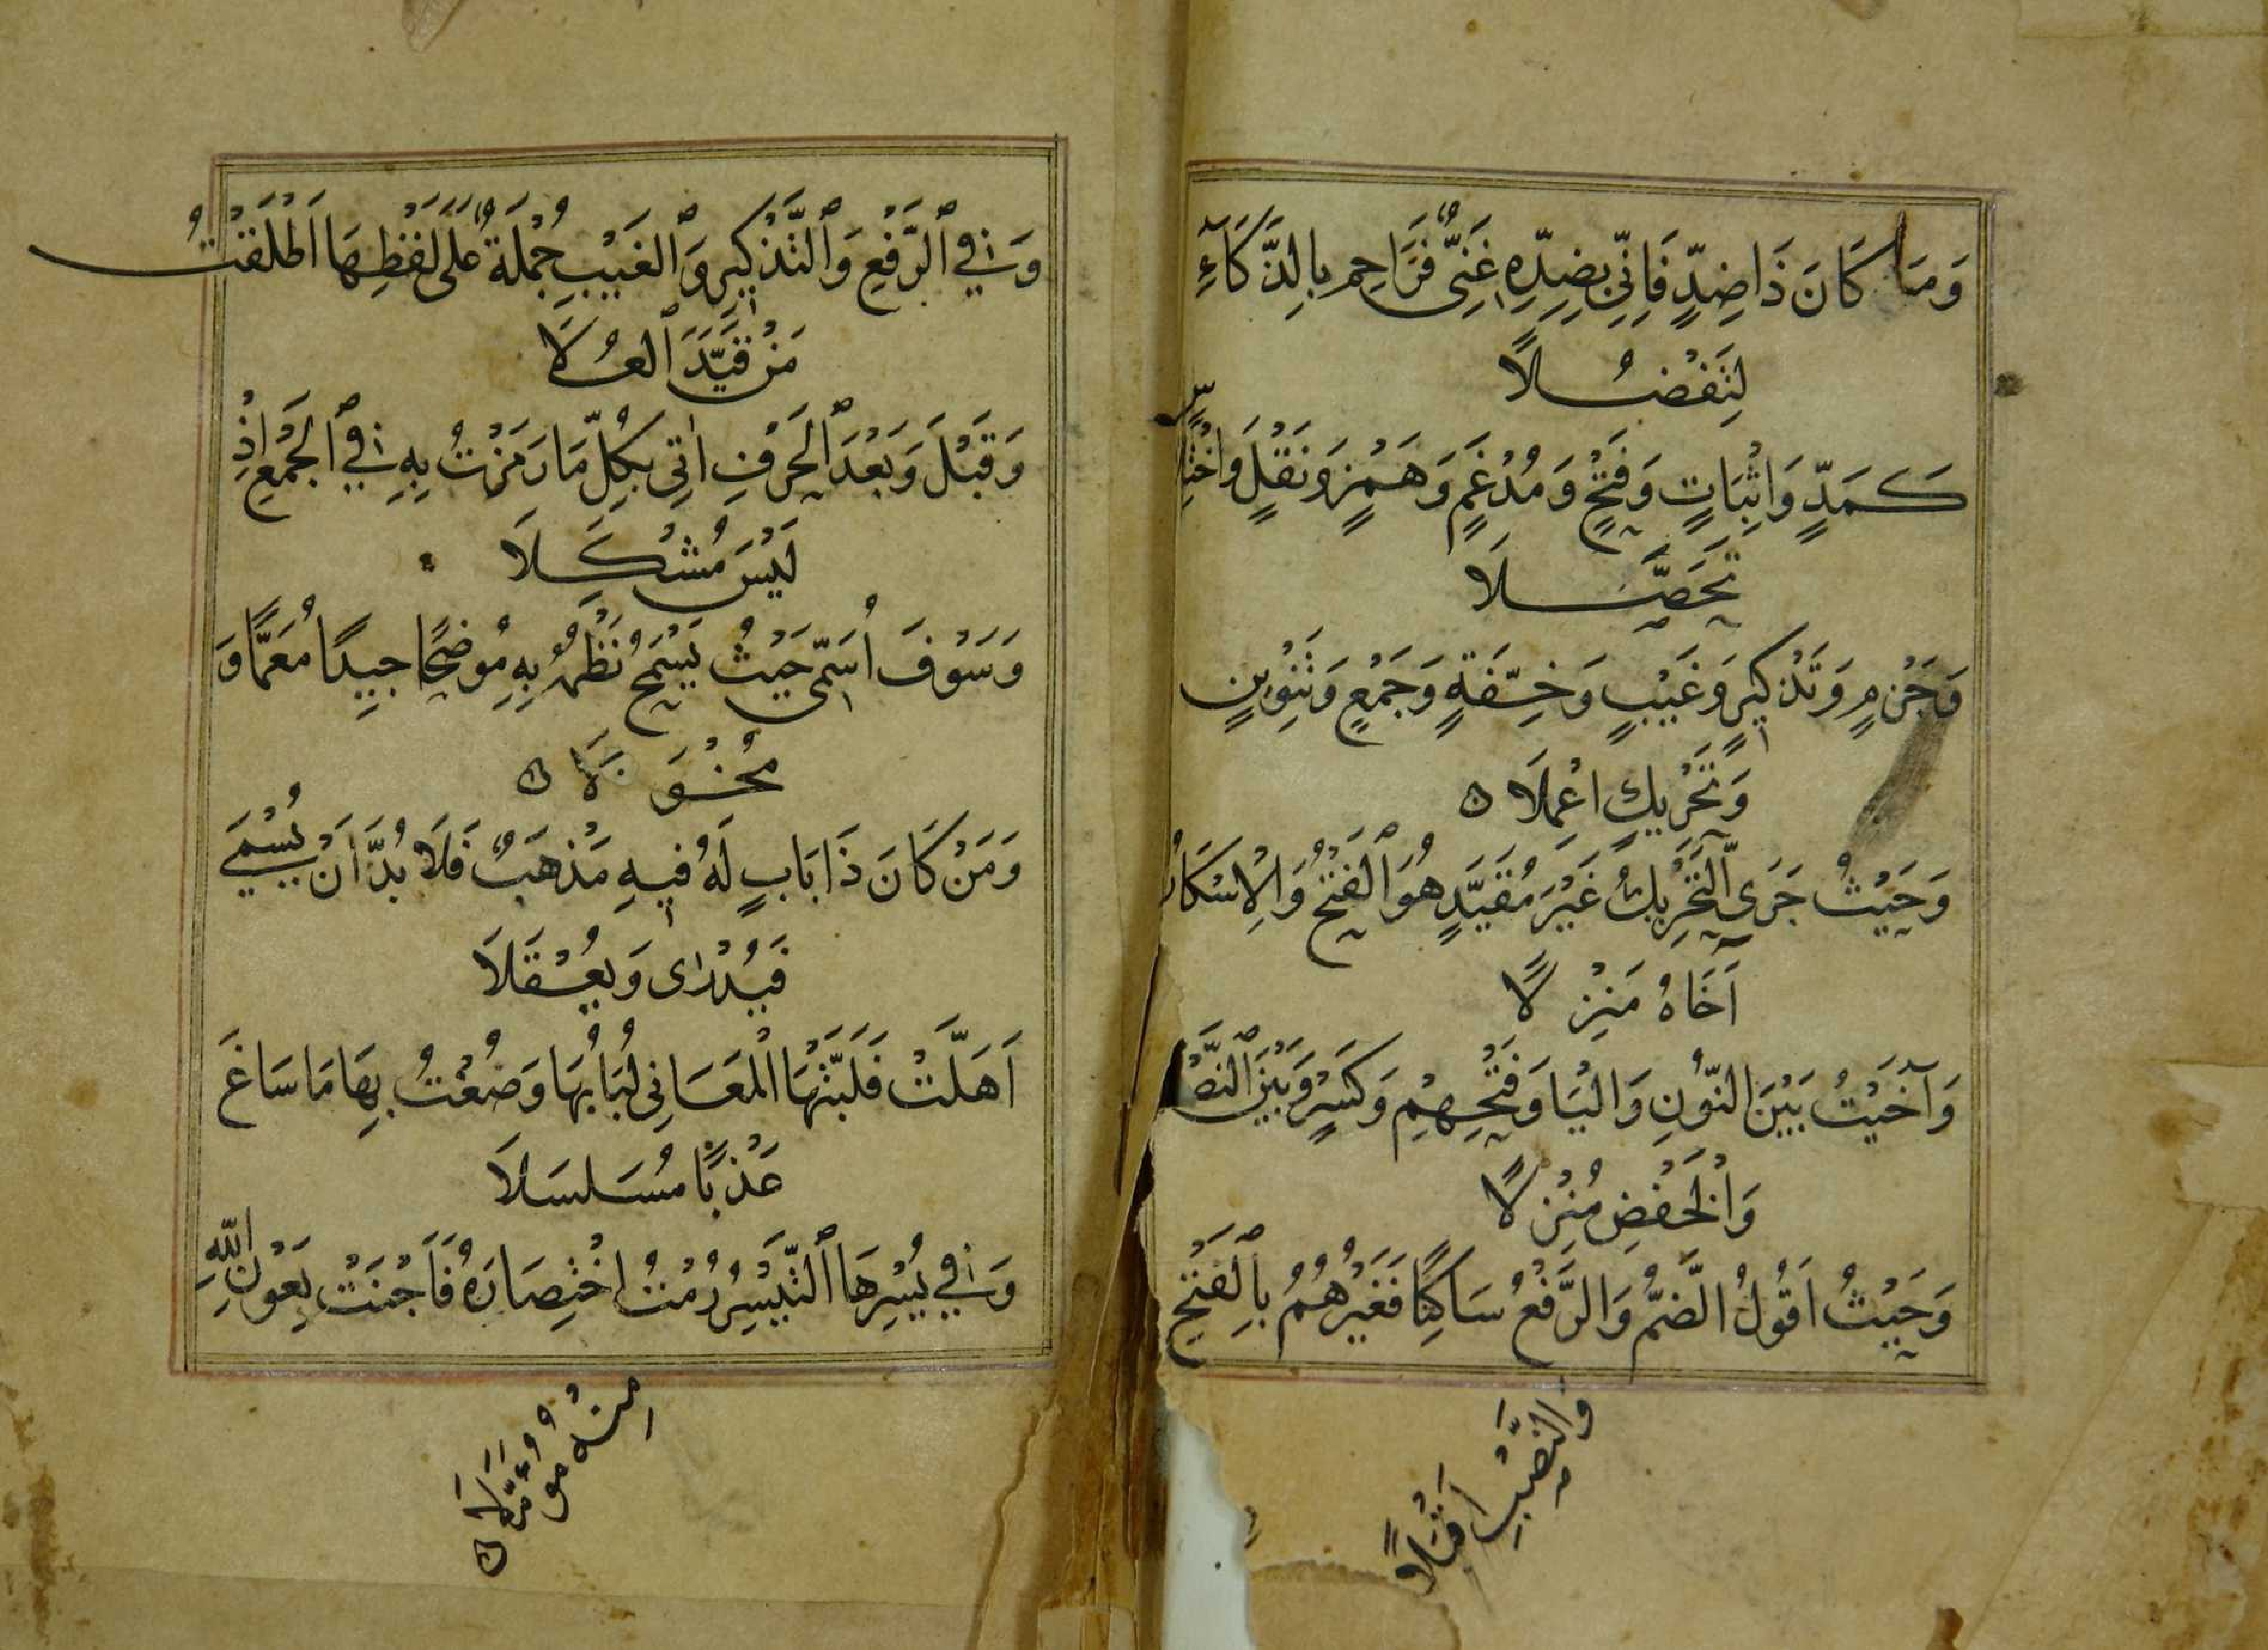 وَمَا كَانَ ذَا ضِدٍّ فَاِنِّي بِضِدِّهِ غَنِيٌّ فَزَاحِم بِالذَّكَآءِ
لِتَفْضُلًا
كَمَدٍّ وَاثْبَاتٍ وَفَتْحٍ وَمُدْغَمٍ وَهَمْزٍ وَنَقْلٍ وَاخْتِلَاسٍ
تَحَصَّلَا
وَجَزْمٍ وَتَذْكِيرٍ وَغَيْبٍ وَخِفَّةٍ وَجَمْعٍ وَتَنْوِينٍ
وَتَحْرِيكٍ اعْمِلَا
وَحَيْثُ جَرَى ٱلتَّحْرِيكُ غَيْرَ مُقَيَّدٍ هُوَ ٱلْفَتْحُ وَالْاِسْكَانُ
آخَاهُ مَنْزِلًا
وَآخَيْتُ بَيْنَ النُّونِ وَالْيَا وَفَتْحِهِمْ وَكَسْرٍ وَبَيْنَ ٱلنَّصْبِ
وَالْخَفْضِ مُنْزِلًا
وَحَيْثُ اَقُولُ الضَّمُّ وَالرَّفْعُ سَاكِتًا فَغَيْرُهُمُ بِالْفَتْحِ
وَالنَّصْبِ اَقْبَلًا
وَفِي ٱلرَّفْعِ وَٱلتَّذْكِيرِ وَٱلْغَيْبِ جُمْلَةٌ عَلَى لَفْظِهَا اَطْلَقْتُ
مَنْ قَيَّدَ ٱلْعُلَا
وَقَبْلَ وَبَعْدَ ٱلْحَرْفِ اٰتِي بِكُلِّ مَا رَمَزْتُ بِهِ فِي ٱلْجَمْعِ اِذْ
لَيْسَ مُشْكَلَا
وَسَوْفَ اُسَمِّي حَيْثُ يَسْمَحُ نَظْمُهُ بِهِ مُوضِحًا جِيدًا مُعَمًّا وَ
مُخْوَلَا
وَمَنْ كَانَ ذَا بَابٍ لَهُ فِيهِ مَذْهَبٌ فَلَا بُدَّ اَنْ يُسْمَى
فَيُدْرٰى وَيُعْقَلَا
اَهَلَّتْ فَلَبَّتْهَا الْمَعَانِي لُبَابُهَا وَصُغْتُ بِهَا مَا سَاغَ
عَذْبًا مُسَلسَلَا
وَفِي يُسْرِهَا ٱلتَّيْسِيرُ رُمْتُ اخْتِصَارَهُ فَاَجْنَتْ بِعَوْنِ اللّٰهِ
مِنْهُ مُؤَمَّلَا